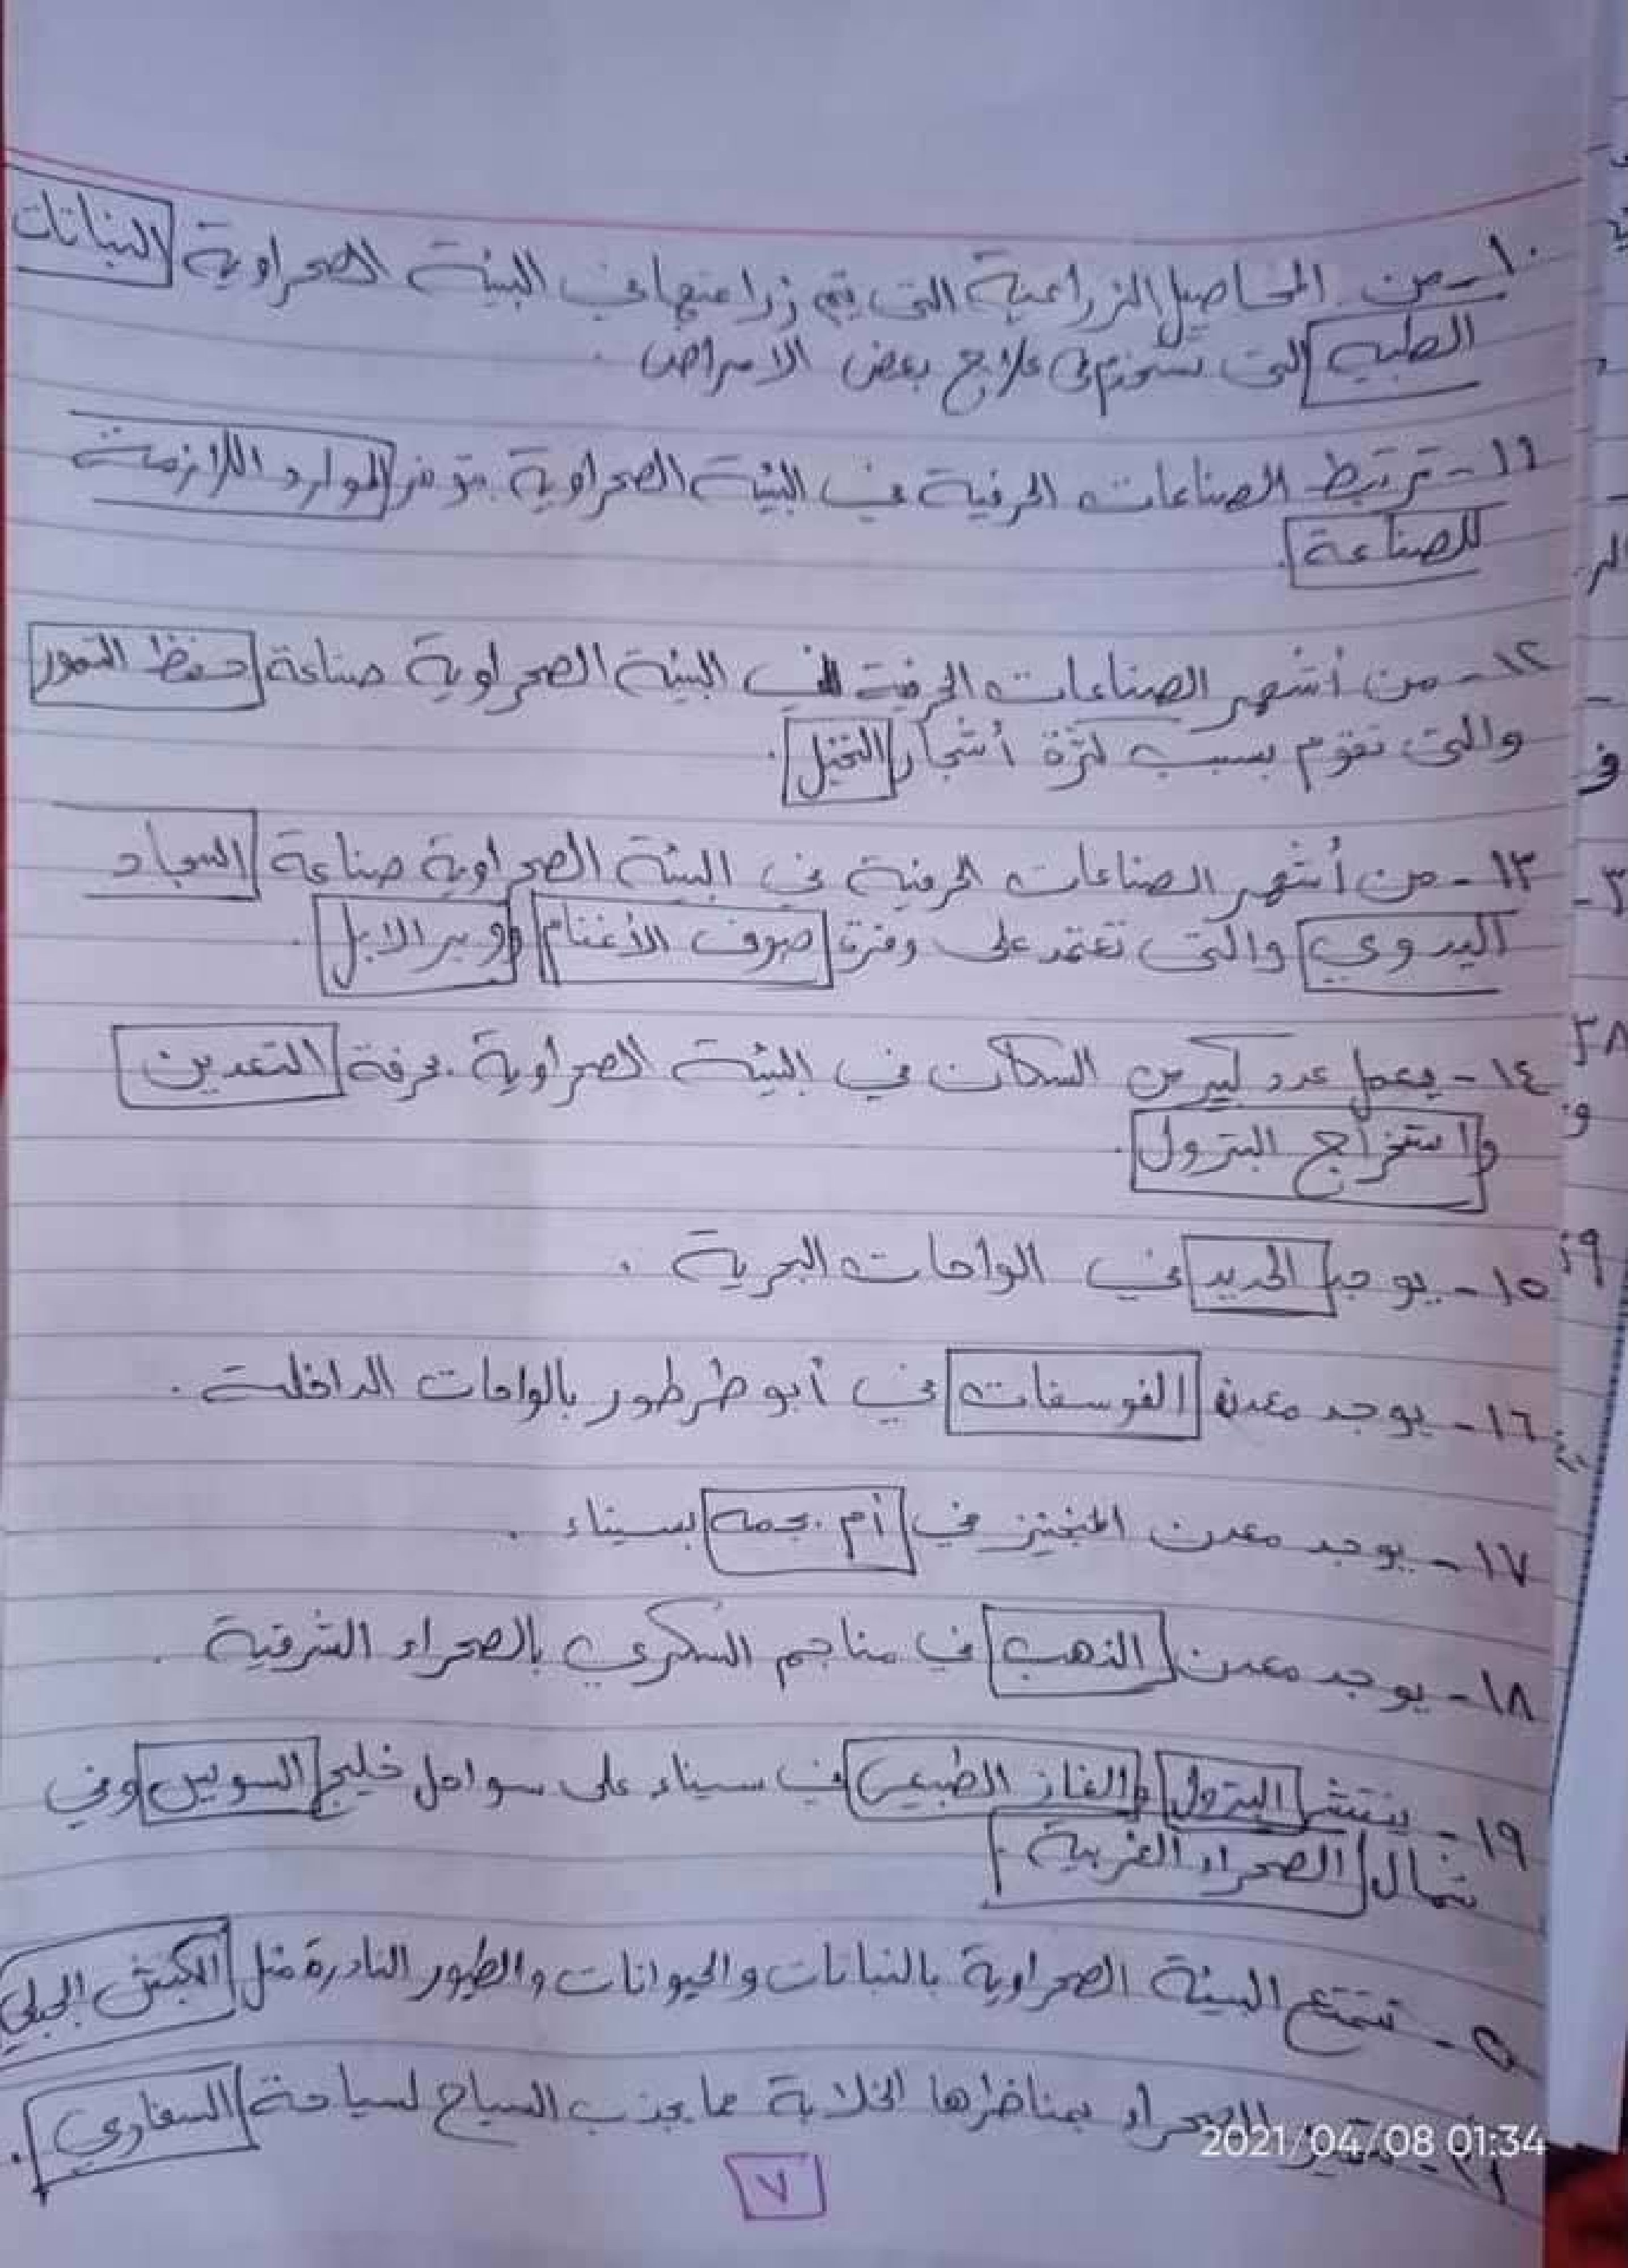 ١٠- من المحاصيل الزراعية التى يتم زراعتها في البيئة الصحراوية النباتات
الطبيه التى تستخدم فى علاج بعض الامراض .
١١- ترتبط الصناعات الحرفية في البيئة الصحراوية بتوفر الموارد اللازمة
للصناعة .
١٢- من أشهر الصناعات الحرفية في البيئة الصحراوية صناعة حفظ التمور
والتى تقوم بسبب كثرة أشجار النخيل .
١٣- من أشهر الصناعات الحرفية في البيئة الصحراوية صناعة السجاد
اليدوي والتى تعتمد على وفرة صوف الأغنام ووبر الابل .
١٤- يعمل عدد كبير من السكان في البيئة الصحراوية بحرفة التعدين
واستخراج البترول .
١٥- يوجد الحديد في الواحات البحرية .
١٦- يوجد معدن الفوسفات في أبو طرطور بالواحات الداخلة .
١٧- يوجد معدن المنجنيز في أم بجمه بسيناء .
١٨- يوجد معدن الذهب في مناجم السكري بالصحراء الشرقية .
١٩- ينتشر البترول والغاز الطبيعي في سيناء على سواحل خليج السويس وفي
شمال الصحراء الغربية .
تتمتع البيئة الصحراوية بالنباتات والحيوانات والطيور النادرة مثل الكبش الجبلي
٢١- تتميز الصحراء بمناظرها الخلابة مما يجذب السياح لسياحة السفاري .
2021/04/08 01:34
٧